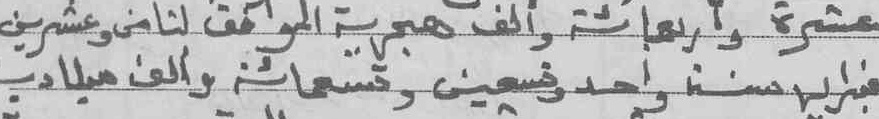 عشرة وأربعمائة وألف هجرية الموافق لثامن وعشرين
فبراير سنة واحد وتسعين وتسعمائة وألف ميلادية